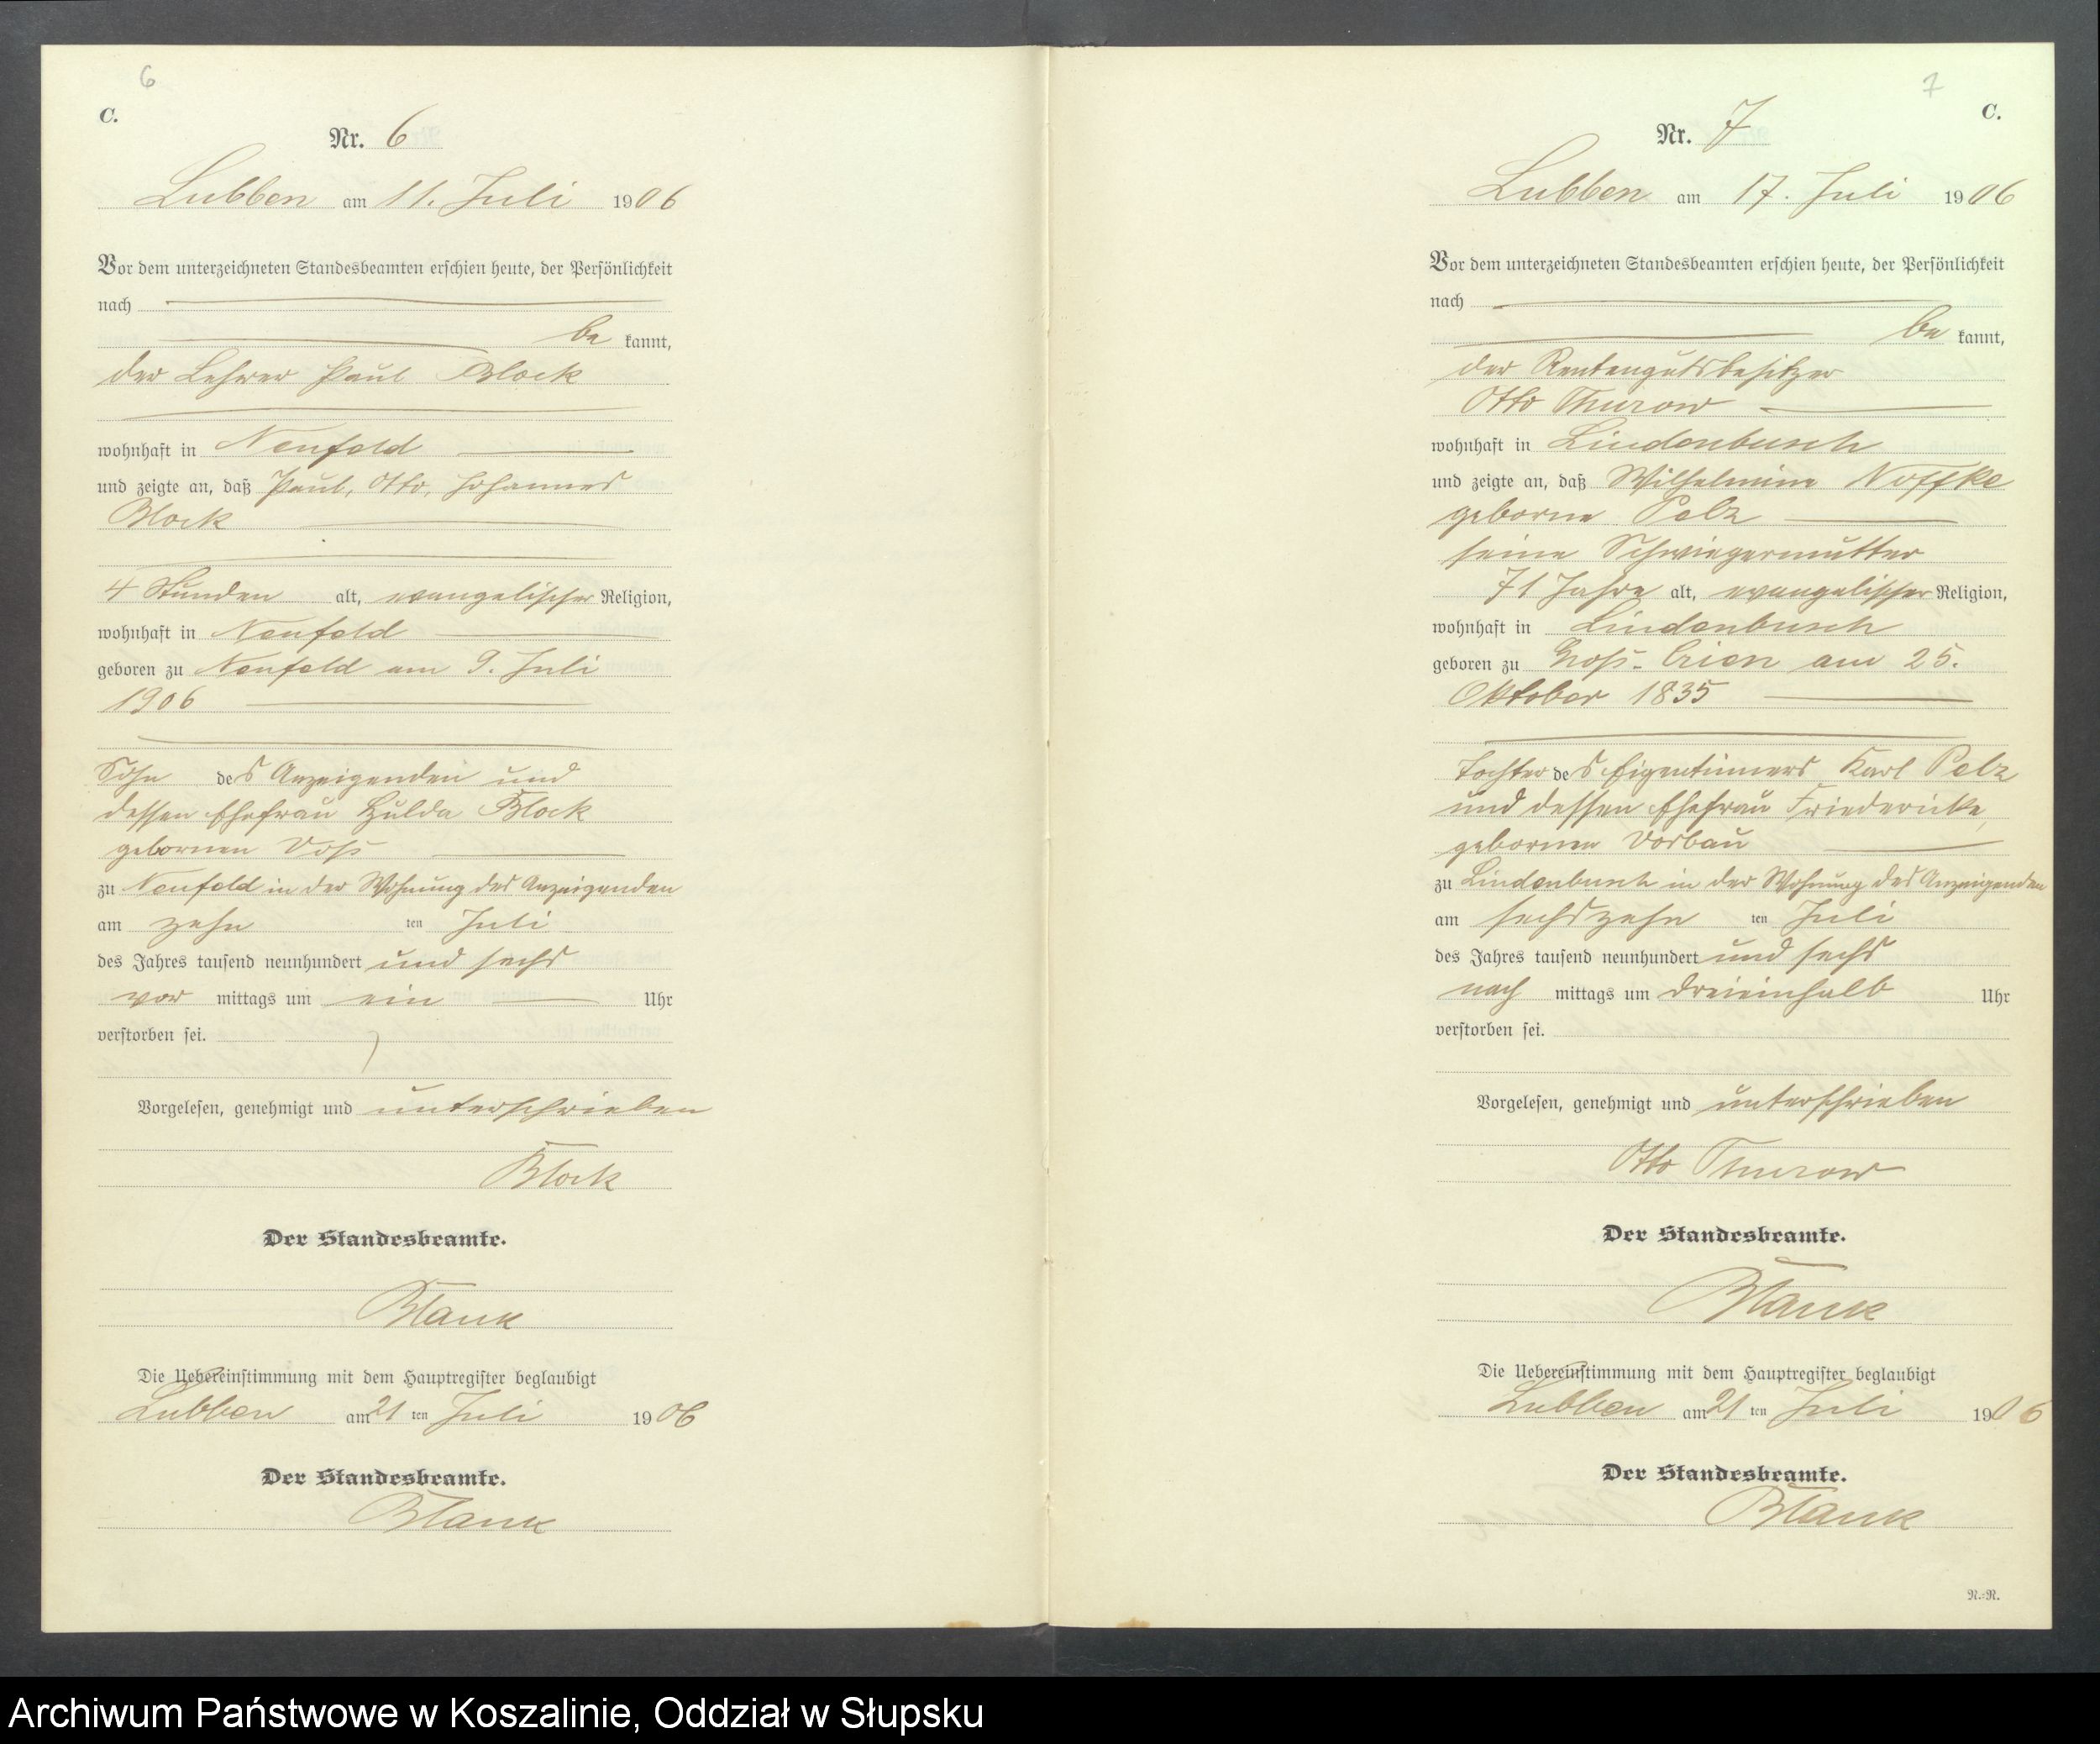 6
C.
Nr. 6
Lubben am 11. Juli 1906
Vor dem unterzeichneten Standesbeamten erschien heute, der Persönlichkeit
nach
be kannt,
der Lehrer Paul Block
wohnhaft in Neufeld
und zeigte an, daß Paul, Otto, Johannes
Block
4 Stunden alt, evangelischer Religion,
wohnhaft in Neufeld
geboren zu Neufeld am 9. Juli
1906
Sohn des Anzeigenden und
dessen Ehefrau Hulda Block
gebornen Voß
zu Neufeld in der Wohnung des Anzeigenden
am zehn ten Juli
des Jahres tausend neunhundert und sechs
vor mittags um ein Uhr
verstorben sei.
Vorgelesen, genehmigt und unterschrieben
Block
Der Standesbeamte.
Blank
Die Uebereinstimmung mit dem Hauptregister beglaubigt
Lubben am 21 ten Juli 1906
Der Standesbeamte.
Blank
7
C.
Nr. 7
Lubben am 17. Juli 1906
Vor dem unterzeichneten Standesbeamten erschien heute, der Persönlichkeit
nach
be kannt,
der Rentengutsbesitzer
Otto Thurow
wohnhaft in Lindenbusch
und zeigte an, daß Wilhelmine Noffke
geborne Pelz
seine Schwiegermutter
71 Jahre alt, evangelischer Religion,
wohnhaft in Lindenbusch
geboren zu Groß-Crien am 25.
Oktober 1835
Tochter des Eigentümers Karl Pelz
und dessen Ehefrau Friedericke,
gebornen Dorbau
zu Lindenbusch in der Wohnung des Anzeigenden
am sechszehn ten Juli
des Jahres tausend neunhundert und sechs
nach mittags um dreieinhalb Uhr
verstorben sei.
Vorgelesen, genehmigt und unterschrieben
Otto Thurow
Der Standesbeamte.
Blank
Die Uebereinstimmung mit dem Hauptregister beglaubigt
Lubben am 21 ten Juli 1906
Der Standesbeamte.
Blank
N.=N.
Archiwum Państwowe w Koszalinie, Oddział w Słupsku